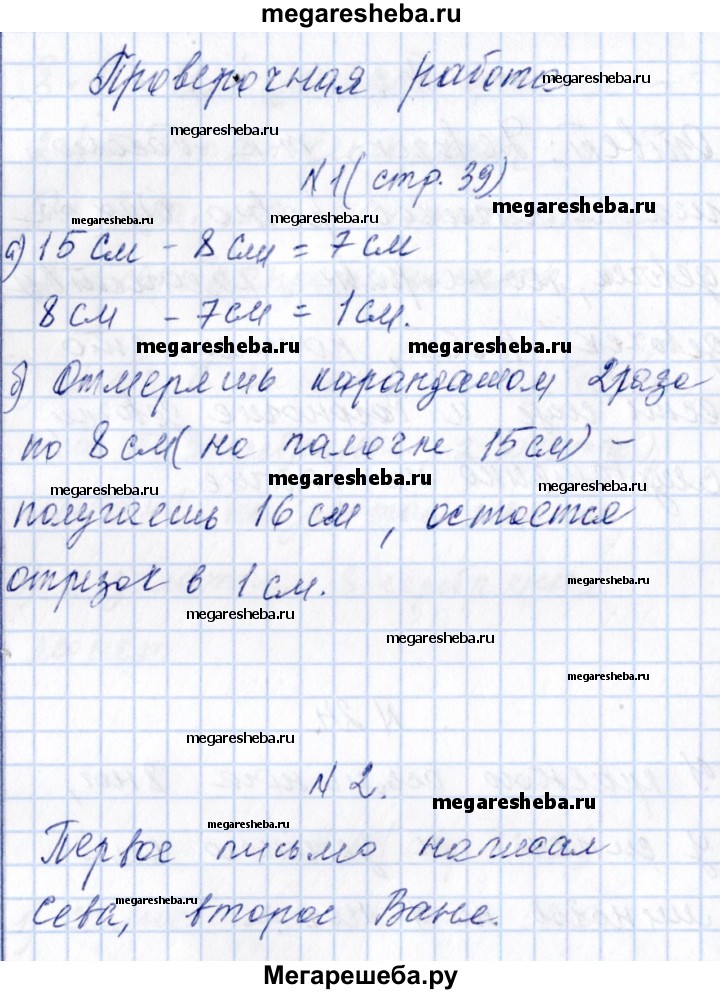 megaresheba.ru
Проверочная работа
megaresheba.ru
megaresheba.ru
N 1 ( стр. 39)
megaresheba.ru
megaresheba.ru
megaresheba.ru
а) 15 см - 8 см = 7 см
8 см - 7 см = 1 см.
megaresheba.ru
megaresheba.ru
б) Отмеряшь карандашом 2раза
по 8 см( на палочке 15см) -
megaresheba.ru
megaresheba.ru
megaresheba.ru
получаешь 16 см, остается
отрезок в 1 см.
megaresheba.ru
megaresheba.ru
megaresheba.ru
megaresheba.ru
megaresheba.ru
N 2.
megaresheba.ru
megaresheba.ru
Первое письмо написал
Сева, второе Ване.
megaresheba.ru
megaresheba.ru
Мегарешеба.ру